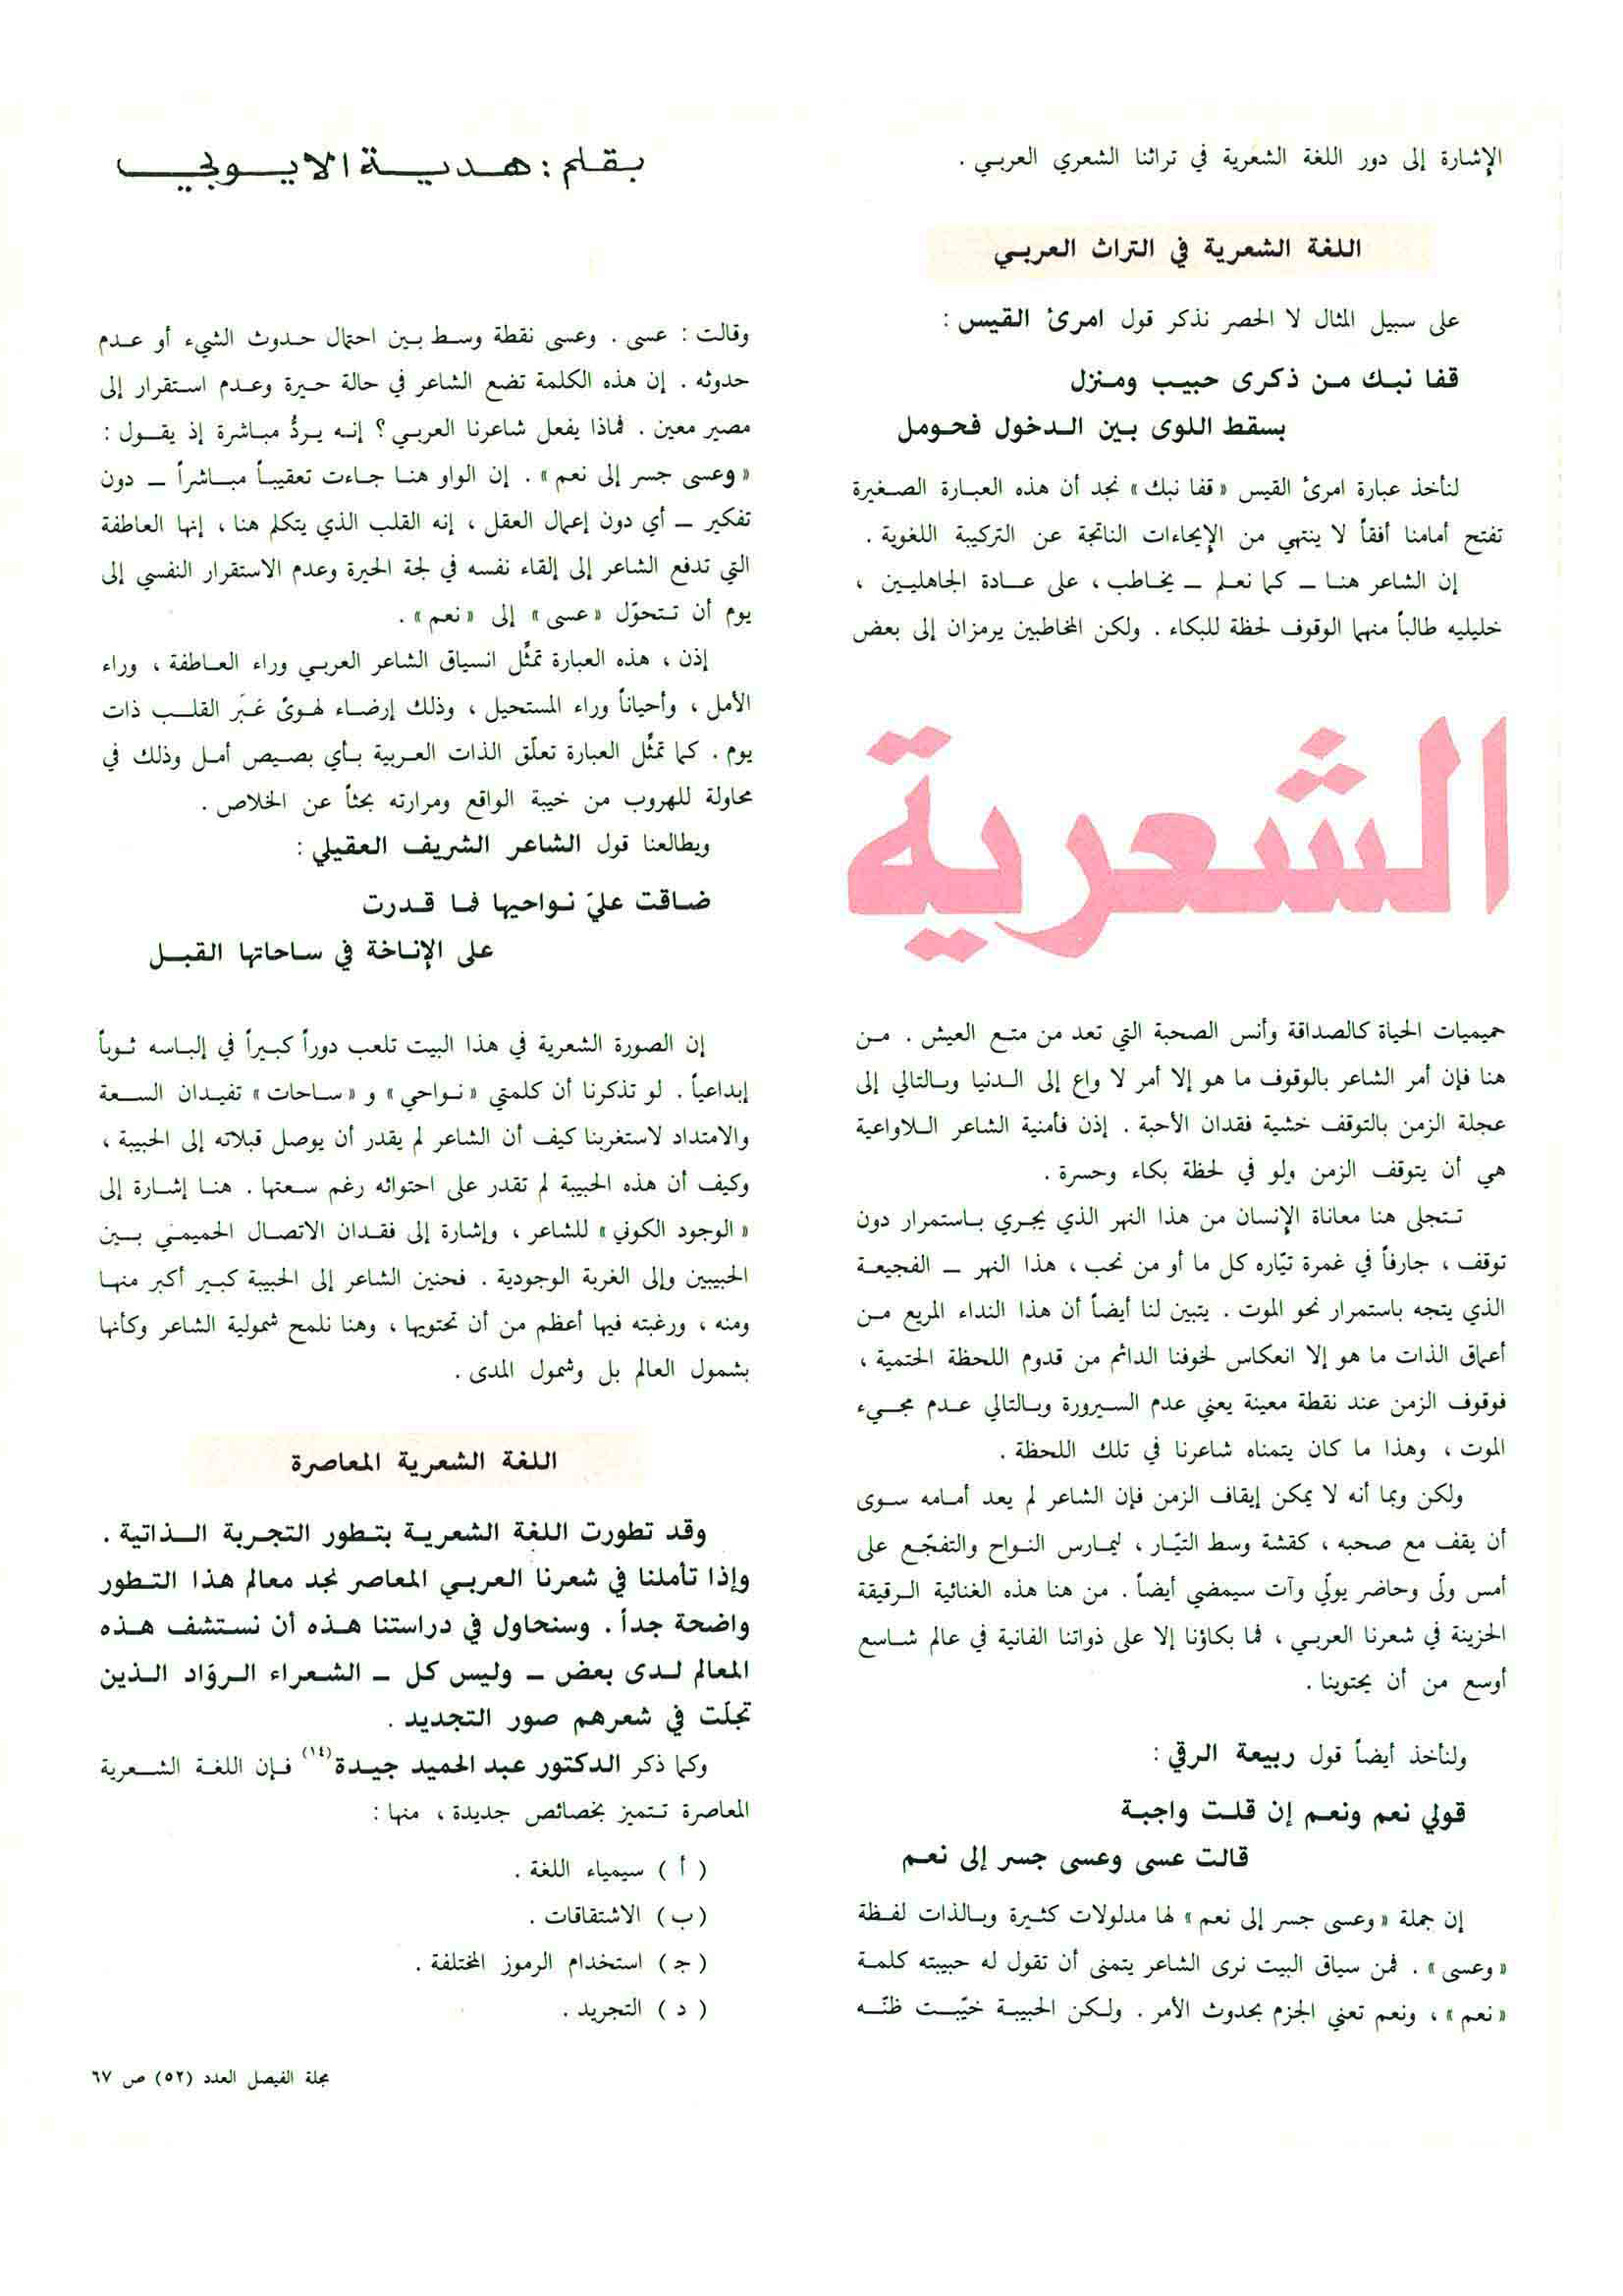 الإشارة إلى دور اللغة الشعرية في تراثنا الشعري العربـي .
اللغة الشعرية في التراث العربـي
على سبيل المثال لا الحصر نذكر قول امرئ القيس :
قفا نبك من ذكرى حبيب ومنزل
بسقط اللوى بين الدخول فحومل
لنأخذ عبارة امرئ القيس «قفا نبك» نجد أن هذه العبارة الصغيرة
تفتح أمامنا أفقاً لا ينتهي من الإيحاءات الناتجة عن التركيبة اللغوية .
إن الشاعر هنا ــ كما نعلم ــ يخاطب ، على عادة الجاهليين ،
خليليه طالباً منهما الوقوف لحظة للبكاء . ولكن المخاطبين يرمزان إلى بعض
الشعرية
حميميات الحياة كالصداقة وأنس الصحبة التي تعد من متع العيش . من
هنا فإن أمر الشاعر بالوقوف ما هو إلا أمر لا واع إلى الدنيا وبالتالي إلى
عجلة الزمن بالتوقف خشية فقدان الأحبة . إذن فأمنية الشاعر اللاواعية
هي أن يتوقف الزمن ولو في لحظة بكاء وحسرة .
تتجلى هنا معاناة الإنسان من هذا النهر الذي يجري باستمرار دون
توقف ، جارفاً في غمرة تيّاره كل ما أو من نحب ، هذا النهر ــ الفجيعة
الذي يتجه باستمرار نحو الموت . يتبين لنا أيضاً أن هذا النداء المريع من
أعماق الذات ما هو إلا انعكاس لخوفنا الدائم من قدوم اللحظة الحتمية ،
فوقوف الزمن عند نقطة معينة يعني عدم السيرورة وبالتالي عدم مجيء
الموت ، وهذا ما كان يتمناه شاعرنا في تلك اللحظة .
ولكن وبما أنه لا يمكن إيقاف الزمن فإن الشاعر لم يعد أمامه سوى
أن يقف مع صحبه ، كقشة وسط التيّار ، ليمارس النواح والتفجّع على
أمس ولّى وحاضر يولّي وآت سيمضي أيضاً . من هنا هذه الغنائية الرقيقة
الحزينة في شعرنا العربـي ، فما بكاؤنا إلا على ذواتنا الفانية في عالم شاسع
أوسع من أن يحتوينا .
ولنأخذ أيضاً قول ربيعة الرقي :
قولي نعم ونعم إن قلت واجبة
قالت عسى وعسى جسر إلى نعم
إن جملة «وعسى جسر إلى نعم» لها مدلولات كثيرة وبالذات لفظة
«وعسى» . فمن سياق البيت نرى الشاعر يتمنى أن تقول له حبيبته كلمة
«نعم» ، ونعم تعني الجزم بحدوث الأمر . ولكن الحبيبة خيّبت ظنّه
بقلم : هدية الايوبي
وقالت : عسى . وعسى نقطة وسط بين احتمال حدوث الشيء أو عدم
حدوثه . إن هذه الكلمة تضع الشاعر في حالة حيرة وعدم استقرار إلى
مصير معين . فماذا يفعل شاعرنا العربي ؟ إنه يردُّ مباشرة إذ يقول :
«وعسى جسر إلى نعم» . إن الواو هنا جاءت تعقيباً مباشراً ــ دون
تفكير ــ أي دون إعمال العقل ، إنه القلب الذي يتكلم هنا ، إنها العاطفة
التي تدفع الشاعر إلى إلقاء نفسه في لجة الحيرة وعدم الاستقرار النفسي إلى
يوم أن تتحوّل «عسى» إلى «نعم» .
إذن ، هذه العبارة تمثّل انسياق الشاعر العربي وراء العاطفة ، وراء
الأمل ، وأحياناً وراء المستحيل ، وذلك إرضاء لهوىً عَبَر القلب ذات
يوم . كما تمثّل العبارة تعلّق الذات العربية بأي بصيص أمل وذلك في
محاولة للهروب من خيبة الواقع ومرارته بحثاً عن الخلاص .
ويطالعنا قول الشاعر الشريف العقيلي :
ضاقت عليّ نواحيها فما قدرت
على الإناخة في ساحاتها القبل
إن الصورة الشعرية في هذا البيت تلعب دوراً كبيراً في إلباسه ثوباً
إبداعياً . لو تذكرنا أن كلمتي «نواحي» و «ساحات» تفيدان السعة
والامتداد لاستغربنا كيف أن الشاعر لم يقدر أن يوصل قبلاته إلى الحبيبة ،
وكيف أن هذه الحبيبة لم تقدر على احتوائه رغم سعتها . هنا إشارة إلى
«الوجود الكوني» للشاعر ، وإشارة إلى فقدان الاتصال الحميمي بين
الحبيبين وإلى الغربة الوجودية . فحنين الشاعر إلى الحبيبة كبير أكبر منها
ومنه ، ورغبته فيها أعظم من أن تحتويها ، وهنا نلمح شمولية الشاعر وكأنها
بشمول العالم بل وشمول المدى .
اللغة الشعرية المعاصرة
وقد تطورت اللغة الشعرية بتطور التجربة الذاتية .
وإذا تأملنا في شعرنا العربـي المعاصر نجد معالم هذا التطور
واضحة جداً . وسنحاول في دراستنا هذه أن نستشف هذه
المعالم لدى بعض ــ وليس كل ــ الشعراء الروّاد الذين
تجلّت في شعرهم صور التجديد .
وكما ذكر الدكتور عبد الحميد جيدة(١٤) فإن اللغة الشعرية
المعاصرة تتميز بخصائص جديدة ، منها :
( أ ) سيمياء اللغة .
(ب) الاشتقاقات .
(جـ) استخدام الرموز المختلفة .
( د ) التجريد .
مجلة الفيصل العدد (٥٢) ص ٦٧